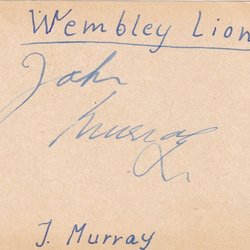 Wembley Lion
John
Murray
J. Murray